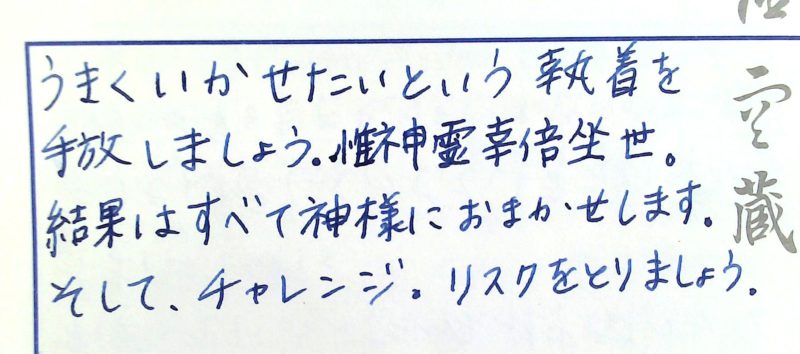 うまくいかせたいという執着を
手放しましょう。惟神霊幸倍坐世。
結果はすべて神様におまかせします。
そして、チャレンジ。リスクをとりましょう。
空蔵